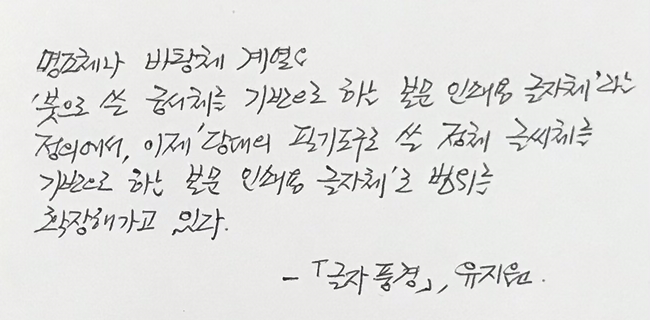 명조체나 바탕체 계열은
'붓으로 쓴 궁서체를 기반으로 하는 본문 인쇄용 글자체'라는
정의에서, 이제 '당대의 필기도구로 쓴 정체 글씨체를
기반으로 하는 본문 인쇄용 글자체'로 범위를
확장해가고 있다.
-「글자 풍경」, 유지원.